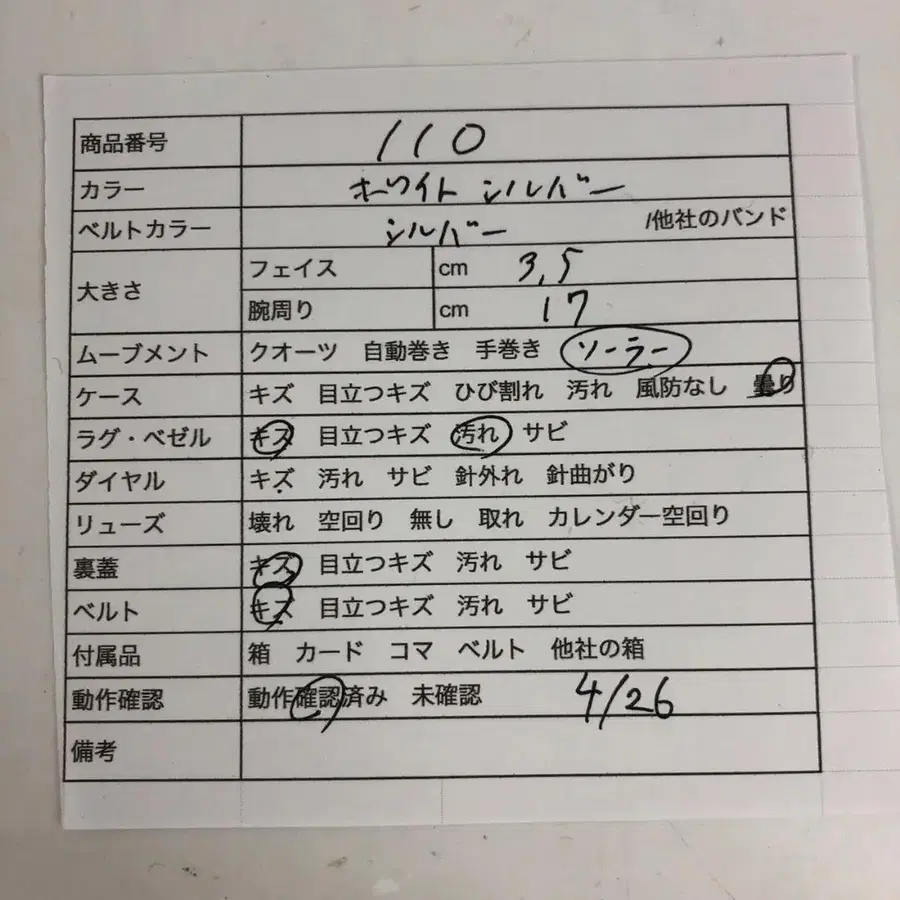 商品番号 110
カラー ホワイト シルバー
ベルトカラー シルバー /他社のバンド
大きさ フェイス cm 3,5
腕周り cm 17
ムーブメント クオーツ 自動巻き 手巻き ソーラー
ケース キズ 目立つキズ ひび割れ 汚れ 風防なし 曇り
ラグ・ベゼル キズ 目立つキズ 汚れ サビ
ダイヤル キズ 汚れ サビ 針外れ 針曲がり
リューズ 壊れ 空回り 無し 取れ カレンダー空回り
裏蓋 キズ 目立つキズ 汚れ サビ
ベルト キズ 目立つキズ 汚れ サビ
付属品 箱 カード コマ ベルト 他社の箱
動作確認 動作確認済み 未確認 4/26
備考